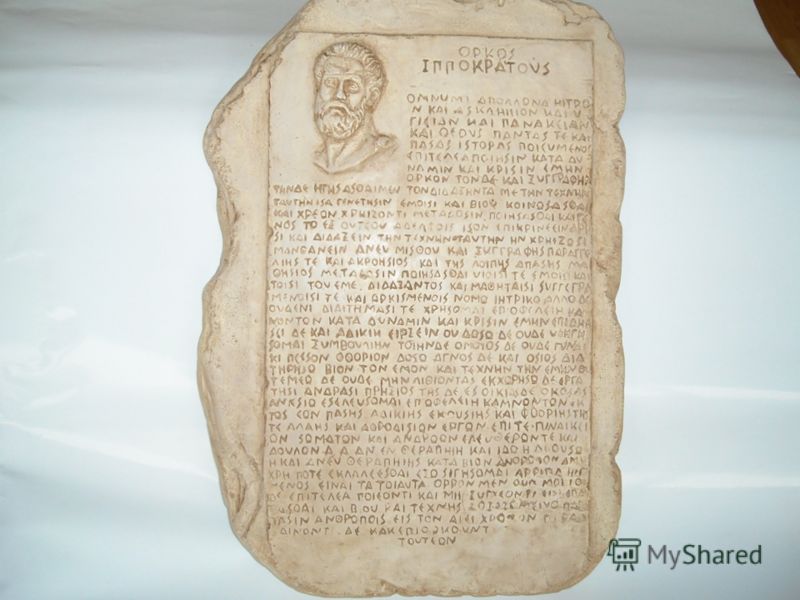 ΟΡΚΟS
ΙΠΠΟΚΡΑΤΟΥS
ΟΜΝΥΜΙ ΑΠΟΛΛΟΝΑ ΗΙΤΡΟ
Ν ΚΑΙ ΑSΚΛΗΠΙΟΝ ΚΑΙ Υ
ΓΙΕΙΑΝ ΚΑΙ ΠΑΝΑΚΕΙΑΝ
ΚΑΙ ΘΕΟΥS ΠΑΝΤΑS ΤΕ ΚΑΙ
ΠΑSΑS ΙSΤΟΡΑS ΠΟΙΕΥΜΕΝΟS
ΕΠΙΤΕΛΕΑ ΠΟΙΗSΙΝ ΚΑΤΑ ΔΥ
ΝΑΜΙΝ ΚΑΙ ΚΡΙSΙΝ ΕΜΗΝ
ΟΡΚΟΝ ΤΟΝΔΕ ΚΑΙ ΞΥΓΓΡΑΦΗΝ
ΤΗΝΔΕ ΗΓΗSΑSΘΑΙ ΜΕΝ ΤΟΝ ΔΙΔΑΞΑΝΤΑ ΜΕ ΤΗΝ ΤΕΧΝΗΝ
ΤΑΥΤΗΝ ΙSΑ ΓΕΝΕΤΗSΙΝ ΕΜΟΙSΙ ΚΑΙ ΒΙΟΥ ΚΟΙΝΩSΑSΘΑΙ
ΚΑΙ ΧΡΕΩΝ ΧΡΗΙΖΟΝΤΙ ΜΕΤΑΔΟSΙΝ ΠΟΙΗSΑSΘΑΙ ΚΑΙ ΓΕ
ΝΟS ΤΟ ΕΞ ΟΥΤΕΟΥ ΑΔΕΛΦΟΙS ΙSΟΝ ΕΠΙΚΡΙΝΕΕΙΝ
SΙ ΚΑΙ ΔΙΔΑΞΕΙΝ ΤΗΝ ΤΕΧΝΗΝ ΤΑΥΤΗΝ ΗΝ ΧΡΗΙΖΟSΙ
ΜΑΝΘΑΝΕΙΝ ΑΝΕΥ ΜΙSΘΟΥ ΚΑΙ ΞΥΓΓΡΑΦΗS ΠΑΡΑΓΓΕ
ΛΙΗS ΤΕ ΚΑΙ ΑΚΡΟΗSΙΟS ΚΑΙ ΤΗS ΛΟΙΠΗS ΑΠΑSΗS ΜΑ
ΘΗSΙΟS ΜΕΤΑΔΟSΙΝ ΠΟΙΗSΑSΘΑΙ ΥΙΟΙSΙ ΤΕ ΕΜΟΙSΙ ΚΑΙ
ΤΟΙSΙ ΤΟΥ ΕΜΕ ΔΙΔΑΞΑΝΤΟS ΚΑΙ ΜΑΘΗΤΑΙSΙ SΥΓΓΕΓΡΑ
ΜΕΝΟΙSΙ ΤΕ ΚΑΙ ΩΡΚΙSΜΕΝΟΙS ΝΟΜΩ ΙΗΤΡΙΚΩ ΑΛΛΩ ΔΕ
ΟΥΔΕΝΙ ΔΙΑΙΤΗΜΑSΙ ΤΕ ΧΡΗSΟΜΑΙ ΕΠ ΩΦΕΛΕΙΗ ΚΑ
ΜΝΟΝΤΩΝ ΚΑΤΑ ΔΥΝΑΜΙΝ ΚΑΙ ΚΡΙSΙΝ ΕΜΗΝ ΕΠΙ ΔΗΛΗ
SΕΙ ΔΕ ΚΑΙ ΑΔΙΚΙΗ ΕΙΡΞΕΙΝ ΟΥ ΔΩSΩ ΔΕ ΟΥΔΕ ΥΦΗΓΗ
SΟΜΑΙ ΞΥΜΒΟΥΛΙΗΝ ΤΟΙΗΝΔΕ ΟΜΟΙΟS ΔΕ ΟΥΔΕ ΓΥΝΑΙ
ΚΙ ΠΕSSΟΝ ΦΘΟΡΙΟΝ ΔΩSΩ ΑΓΝΟS ΔΕ ΚΑΙ ΟSΙΟS ΔΙΑ
ΤΗΡΗSΩ ΒΙΟΝ ΤΟΝ ΕΜΟΝ ΚΑΙ ΤΕΧΝΗΝ ΤΗΝ ΕΜΗΝ ΟΥ
ΤΕΜΕΩ ΔΕ ΟΥΔΕ ΜΗΝ ΛΙΘΙΩΝΤΑS ΕΚΧΩΡΗSΩ ΔΕ ΕΡΓΑ
ΤΗSΙ ΑΝΔΡΑSΙ ΠΡΗΞΙΟS ΤΗS ΔΕ ΕS ΟΙΚΙΑS ΔΕ ΟΚΟSΑS
ΑΝ ΕSΙΩ ΕSΕΛΕΥSΟΜΑΙ ΕΠ ΩΦΕΛΕΙΗ ΚΑΜΝΟΝΤΩΝ ΕΚ
ΤΟS ΕΩΝ ΠΑSΗS ΑΔΙΚΙΗS ΕΚΟΥSΙΗS ΚΑΙ ΦΘΟΡΙΗS ΤΗS
ΤΕ ΑΛΛΗS ΚΑΙ ΑΦΡΟΔΙSΙΩΝ ΕΡΓΩΝ ΕΠΙ ΤΕ ΓΥΝΑΙΚΕΙ
ΩΝ SΩΜΑΤΩΝ ΚΑΙ ΑΝΔΡΩΩΝ ΕΛΕΥΘΕΡΩΝ ΤΕ ΚΑΙ
ΔΟΥΛΩΝ Α Δ ΑΝ ΕΝ ΘΕΡΑΠΗΙΗ ΚΑΙ ΙΔΩ Η ΑΚΟΥSΩ
Η ΚΑΙ ΑΝΕΥ ΘΕΡΑΠΗΙΗS ΚΑΤΑ ΒΙΟΝ ΑΝΘΡΩΠΩΝ Α ΜΗ
ΧΡΗ ΠΟΤΕ ΕΚΛΑΛΕΕSΘΑΙ ΕΞΩ SΙΓΗSΟΜΑΙ ΑΡΡΗΤΑ ΗΓΕ
ΜΕΝΟS ΕΙΝΑΙ ΤΑ ΤΟΙΑΥΤΑ ΟΡΚΟΝ ΜΕΝ ΟΥΝ ΜΟΙ ΤΟ
ΕΠΙΤΕΛΕΑ ΠΟΙΕΟΝΤΙ ΚΑΙ ΜΗ ΞΥΓΧΕΟΝΤΙ ΕΙΗ
ΚΑΙ ΒΙΟΥ ΚΑΙ ΤΕΧΝΗS
ΑΝΘΡΩΠΟΙS ΕΙS ΤΟΝ ΑΙΕΙ ΧΡΟΝΟΝ
ΔΕ ΚΑΙ ΕΠΙΟΡΚΟΥΝΤΙ
ΤΟΥΤΕΩΝ
MyShared